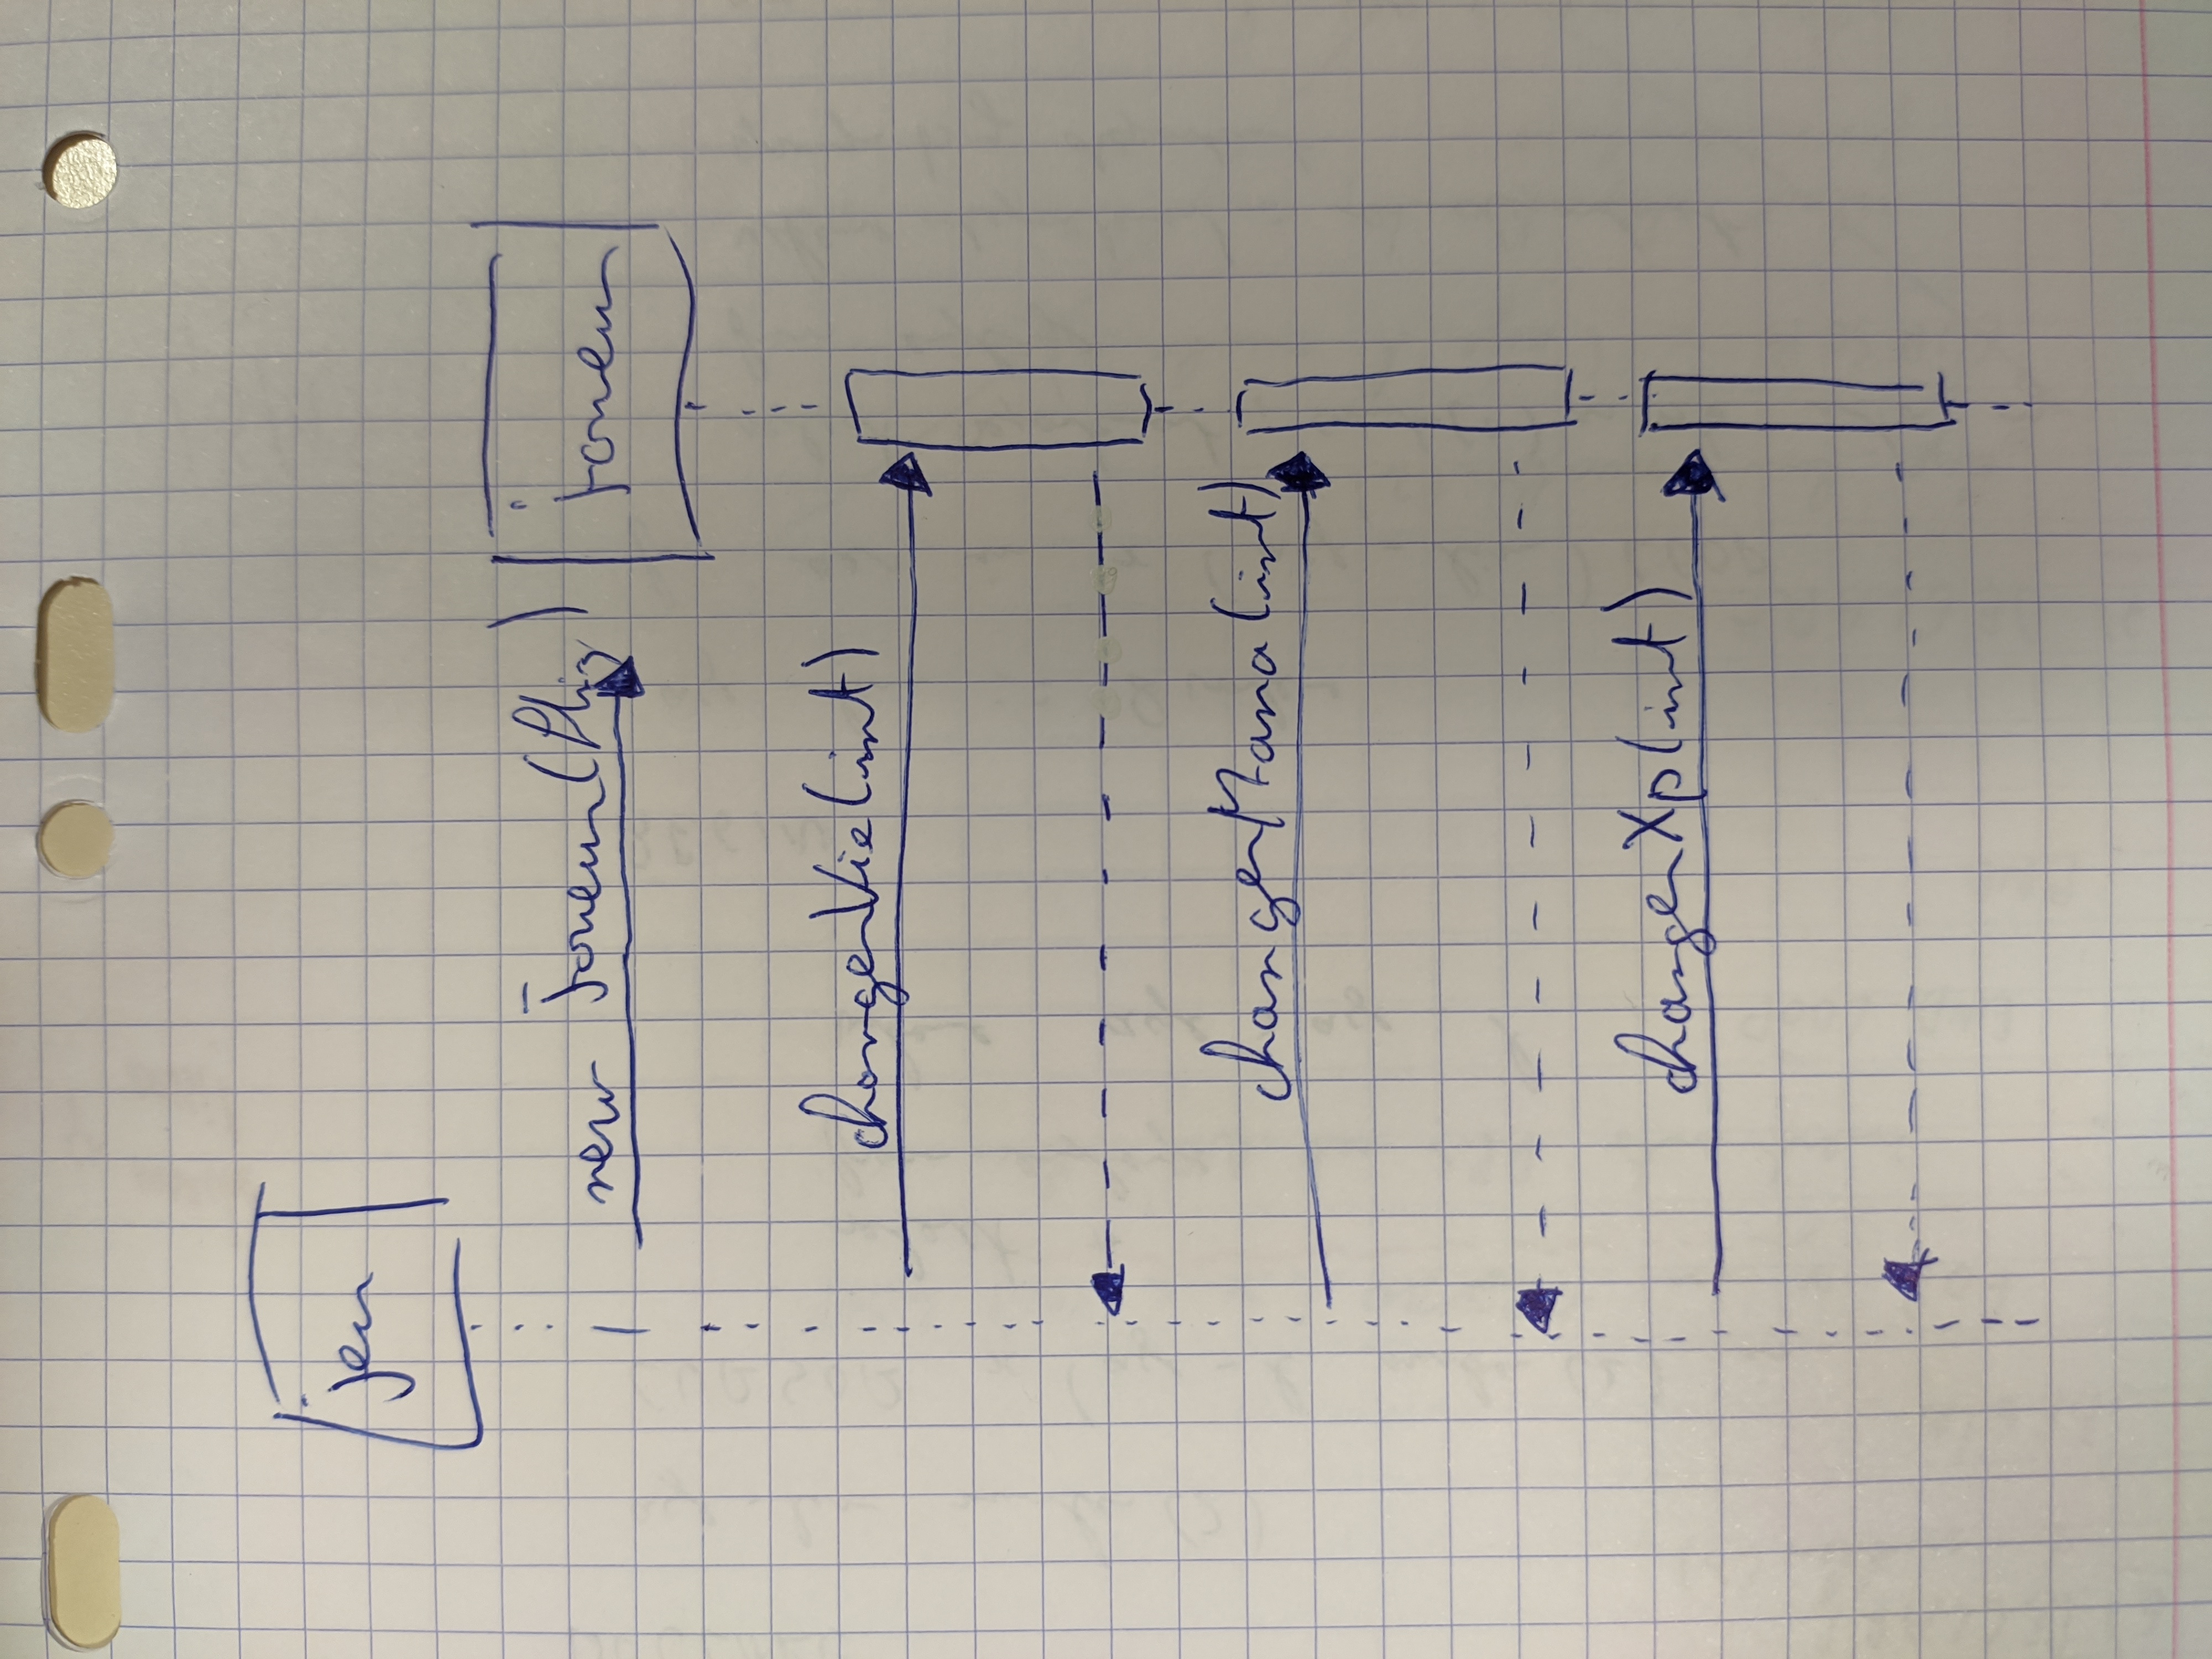 jeu
new Joueur(            )
joueur
changerVie(int)
changerMana(int)
changerXp(int)